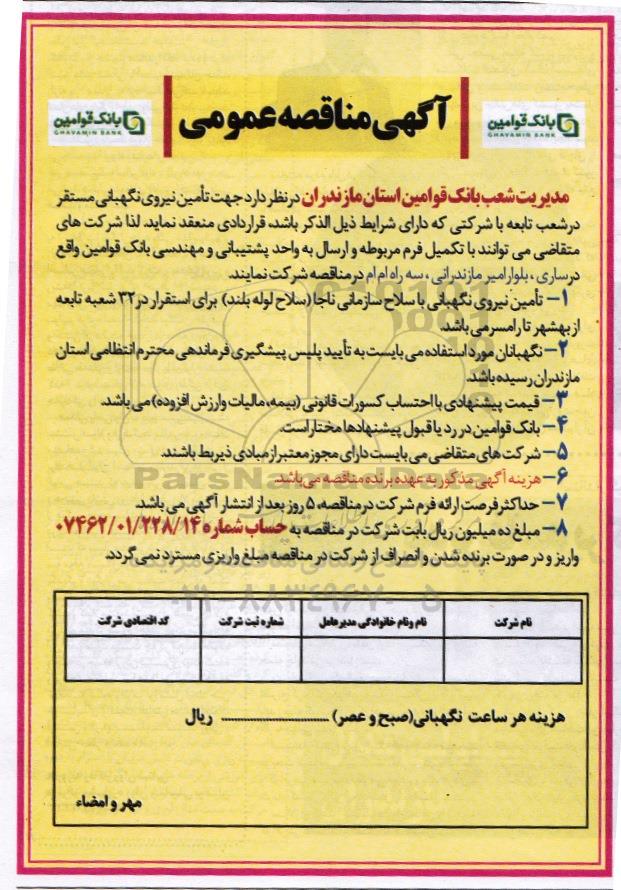 بانک قوامین
GHAVAMIN BANK
آگهی مناقصه عمومی
بانک قوامین
GHAVAMIN BANK
مدیریت شعب بانک قوامین استان مازندران در نظر دارد جهت تأمین نیروی نگهبانی مستقر
در شعب تابعه با شرکتی که دارای شرایط ذیل الذکر باشد، قراردادی منعقد نماید. لذا شرکت های
متقاضی می توانند با تکمیل فرم مربوطه و ارسال به واحد پشتیبانی و مهندسی بانک قوامین واقع
در ساری ، بلوار امیر مازندرانی ، سه راه ام ام در مناقصه شرکت نمایند.
۱- تأمین نیروی نگهبانی با سلاح سازمانی ناجا (سلاح لوله بلند) برای استقرار در ۳۲ شعبه تابعه
از بهشهر تا رامسر می باشد.
۲- نگهبانان مورد استفاده می بایست به تأیید پلیس پیشگیری فرماندهی محترم انتظامی استان
مازندران رسیده باشد.
۳- قیمت پیشنهادی با احتساب کسورات قانونی (بیمه، مالیات وارزش افزوده) می باشد.
۴- بانک قوامین در رد یا قبول پیشنهادها مختار است.
۵- شرکت های متقاضی می بایست دارای مجوز معتبر از مبادی ذیربط باشند.
۶- هزینه آگهی مذکور به عهده برنده مناقصه می باشد.
۷- حداکثر فرصت ارائه فرم شرکت در مناقصه، ۵ روز بعد از انتشار آگهی می باشد.
۸- مبلغ ده میلیون ریال بابت شرکت در مناقصه به حساب شماره ۰۷۴۶۲/۰۱/۲۲۸/۱۴
واریز و در صورت برنده شدن و انصراف از شرکت در مناقصه مبلغ واریزی مسترد نمی گردد.
ParsNamadData
۰۲۱-۸۸۳۴۹۶۷۰-۵
نام شرکت
نام ونام خانوادگی مدیرعامل
شماره ثبت شرکت
کد اقتصادی شرکت
هزینه هر ساعت نگهبانی(صبح و عصر) .............................. ریال
مهر و امضاء